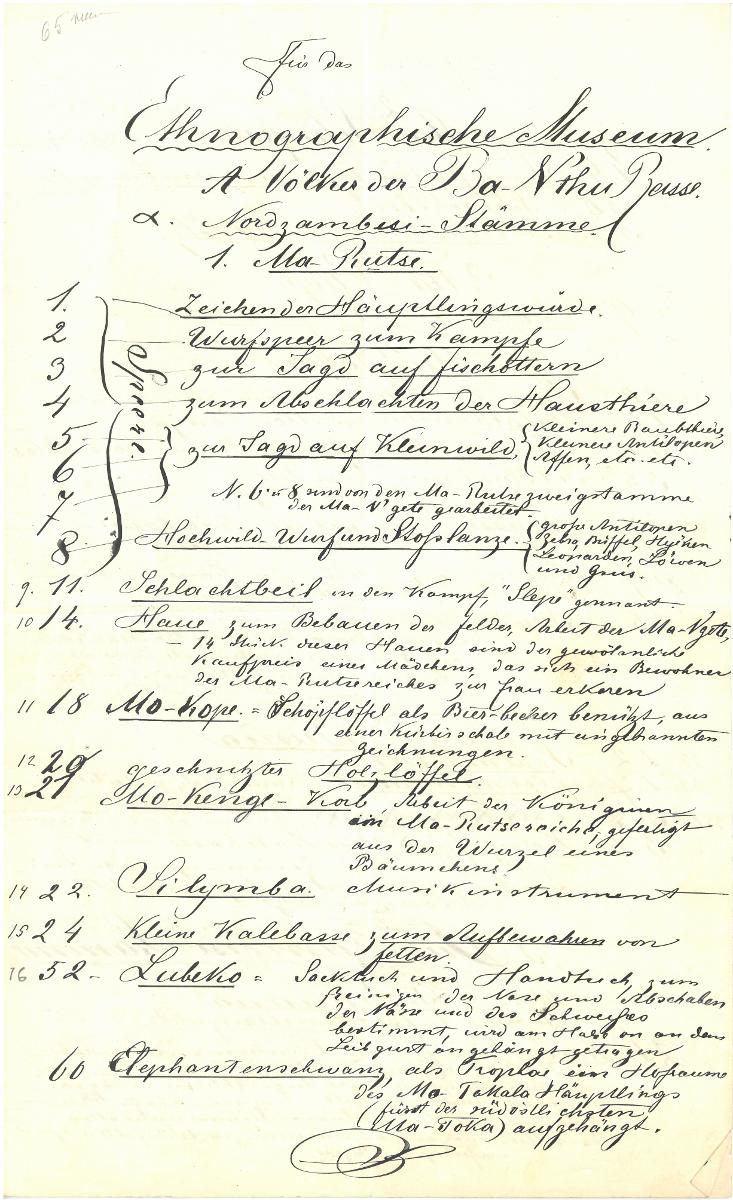 65
Für das
Ethnographische Museum.
A Völker der Ba-Nthu Rasse.
α. Nordzambesi-Stämme.
1. Ma-Rutse.
1. Zeichen der Häuptlingswürde.
2 Wurfspeer zum Kampfe
3 zur Jagd auf fischottern
4 zum Abschlachten der Hausthiere
Speere.
5 zur Jagd auf Kleinwild, kleinere Raubthiere,
6 Kleinere Antilopen
7 Affen, etc. etc.
N. 6 u 8 sind von den Ma-Rutse zweigstamme
der Ma-N'gete gearbeitet.
8. Hochwild-Wurf und Stoßlanze. große Antilopen
Zebra, Büffel, Hyänen
Leoparden, Löwen
und Gnus.
9. 11. Schlachtbeil in den Kampf, "Slepe" genannt.
10 14. Haue zum Bebauen der felder, Arbeit der Ma-N'gete,
– 14 Stück dieser Hauen sind der gewöhnliche
Kaufpreis eines Mädchens, das sich ein Bewohner
der Ma-Rutsereiches zur frau erkoren
11 18 Mo-Kope. = Schöpflöffel als Bier-becher benützt, aus
einer Kürbisschale mit eingebrannten
Zeichnungen.
12 20 geschnitzter Holzlöffel.
13 21 Mo-Kenge-Korb, Arbeit der Königinen
im Ma-Rutsereiche, gefertigt
aus der Wurzel eines
Bäumchens.
14 22. Silymba. Musikinstrument
15 24 Kleine Kalebasse zum Aufbewahren von
fetten.
16 52- Lubeko = Sacktuch und Handtuch, zum
freinigen der Nase und Abschaben
der Nässe und des Schweißes
bestimmt, wird am Halse an den
Leibgurt angehängt getragen
60 Elephantenschwanz, als Trophae im Hofraume
des Mo-Tokala Häuptlings
(fürst der südöstlichsten
Ma-Toka) aufgehängt.